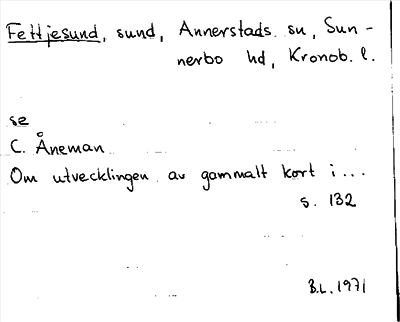 Fettjesund, sund, Annerstads. sn, Sun-
nerbo hd, Kronob. l.
se
C. Åneman
Om utvecklingen av gammalt kort i...
s. 132
B.L. 1971